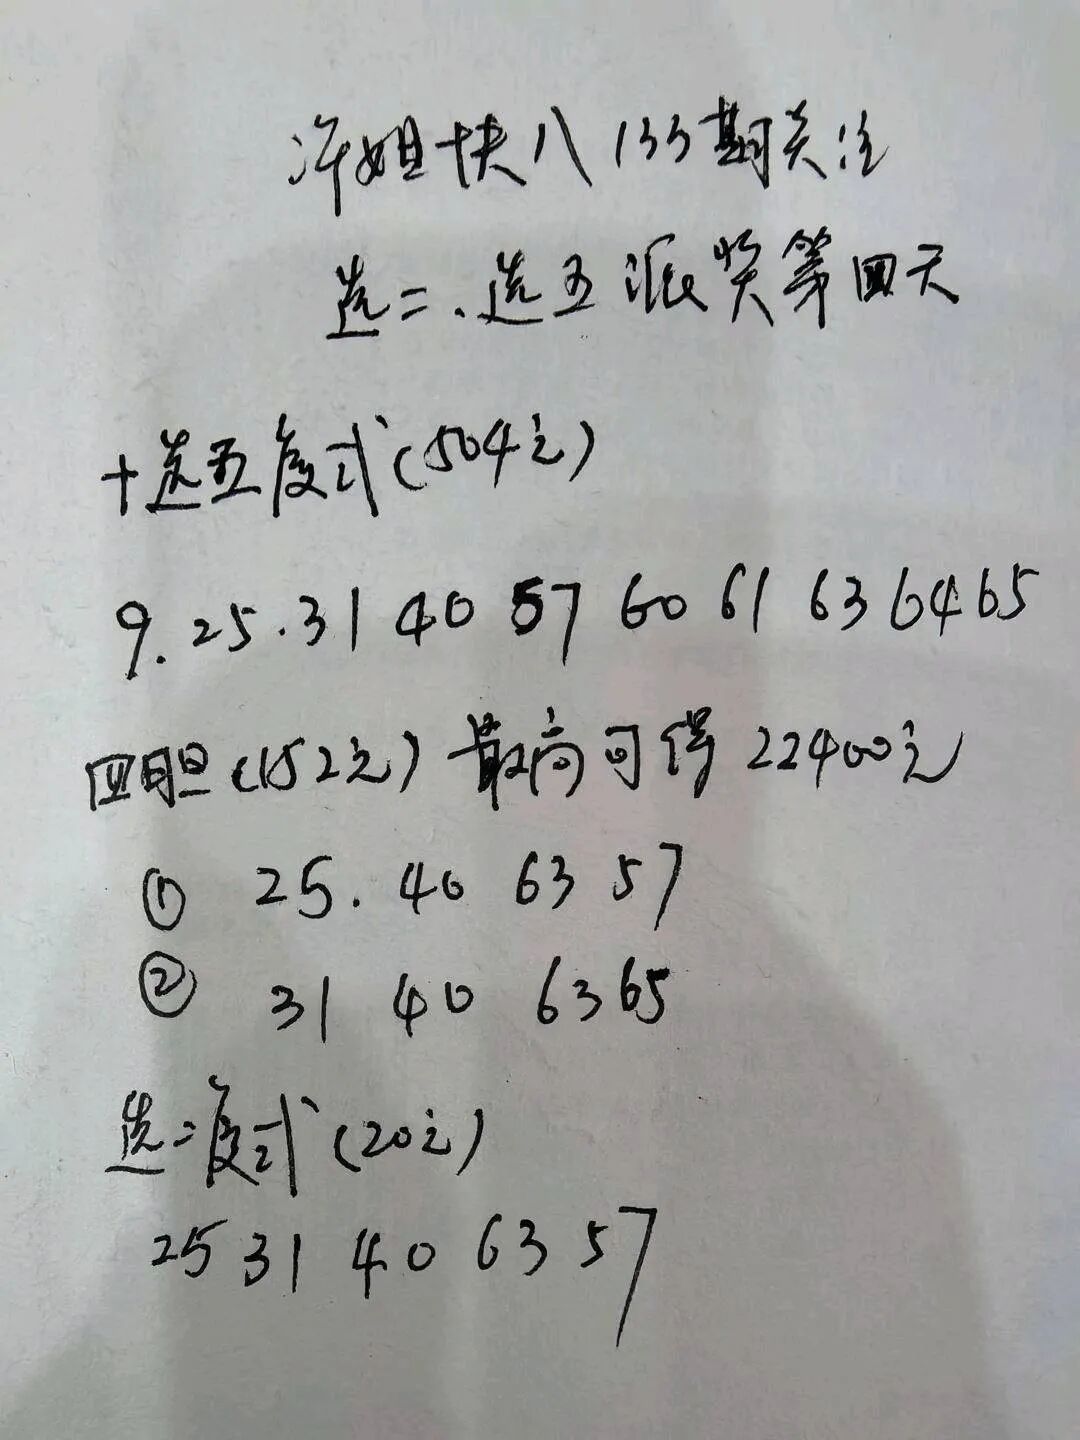 许姐快八133期关注
选二.选五派奖等四天
十选五复式(504元)
9.25.31 40 57 60 61 63 64 65
四胆(152元)最高可得22400元
① 25.40 63 57
② 31 40 63 65
选二复式(20元)
25 31 40 63 57